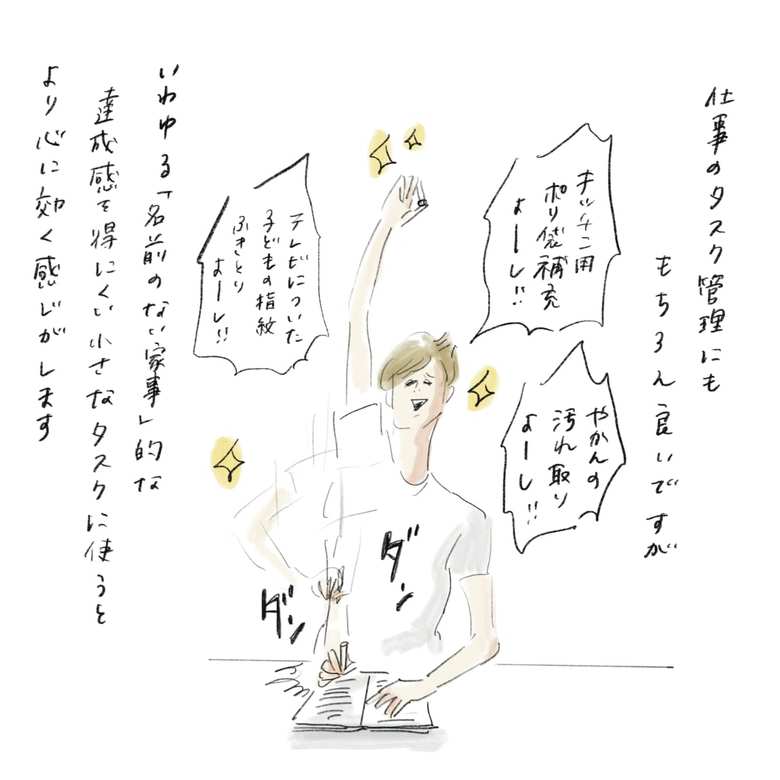 仕事のタスク管理にも
もちろん良いですが
キッチン用
ポリ袋補充
よーし!!
やかんの
汚れ取り
よーし!!
テレビについた
子どもの指紋
ふきとり
よーし!!
ダン
ダン
いわゆる「名前のない家事」的な
達成感を得にくい小さなタスクに使うと
より心に効く感じがします